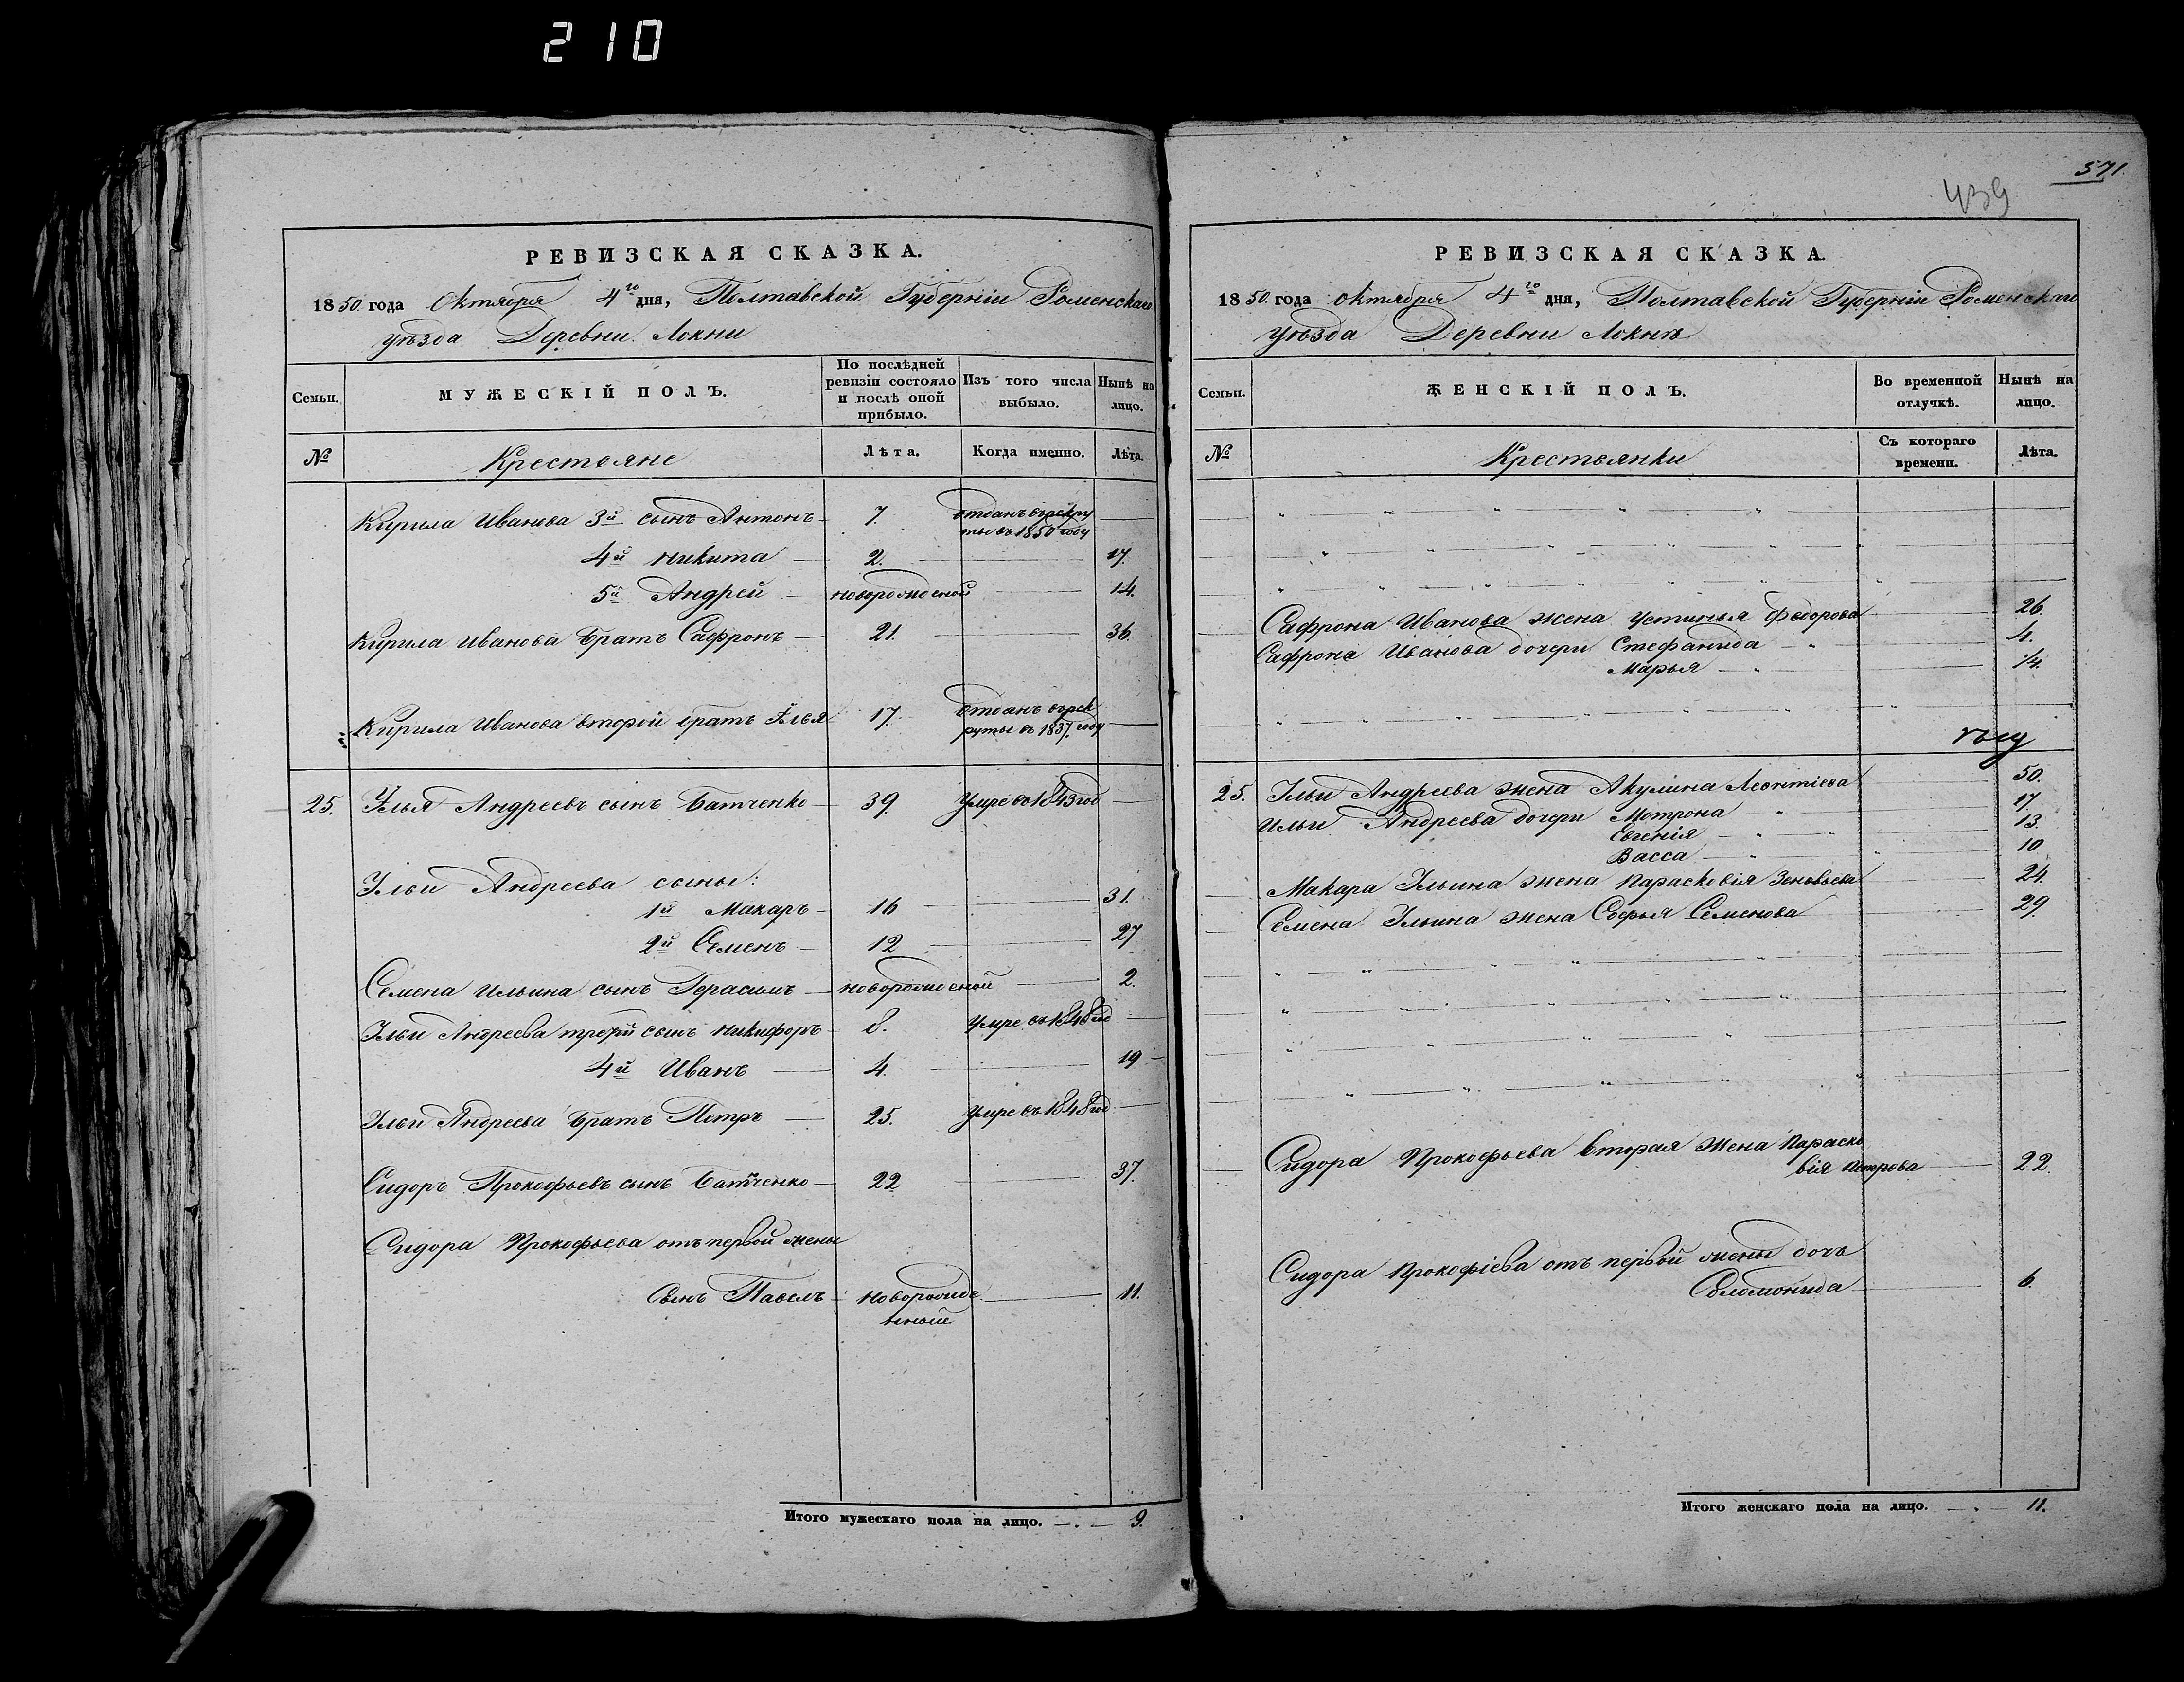 210
РЕВИЗСКАЯ СКАЗКА.
1850. года Октября 4го дня, Полтавской Губерніи Роменскаго
уѣзда Деревни Локни
Семьи.
МУЖЕСКІЙ ПОЛЪ.
По послѣдней ревизіи состояло и послѣ оной прибыло.
Изъ того числа выбыло.
Нынѣ на лицо.
№
Крестьяне
Лѣта.
Когда именно.
Лѣта.
Кирила Иванова 3й сынъ Антонъ 7. отданъ врекру
ты въ 1850 году
4й Никита 2. 17.
5й Андрей новорожденой 14.
Кирила Иванова братъ Сафронъ 21. 36.
Кирила Иванова второй братъ Илья 17. отданъ врек
руты въ 1837. году
25. Илья Андреевъ сынъ Батченко 39. Умре въ 1843 год
Ильи Андреева сыны:
1й Макаръ 16 31.
2й Семенъ 12 27
Семена Ильина сынъ Герасимъ новорожденой 2.
Ильи Андреева третій сынъ Никифоръ 8. Умре въ 1848 год
4й Иванъ 4. 19
Ильи Андреева братъ Петръ 25. Умре въ 1848 год
Сидоръ Прокофьевъ сынъ Батченко 22 37.
Сидора Прокофьева отъ первой жены
сынъ Павелъ новорожде 11.
нный
Итого мужескаго пола на лицо. 9.
571.
439
РЕВИЗСКАЯ СКАЗКА.
1850. года октября 4го дня, Полтавской Губерніи Роменскаго
уѣзда Деревни Локнѣ
Семьи.
ЖЕНСКІЙ ПОЛЪ.
Во временной отлучкѣ.
Нынѣ на лицо.
№
Крестьянки
Съ котораго времени.
Лѣта.
Сафрона Иванова жена Устинья Федорова 26.
Сафрона Иванова дочери Стефанида 4.
Марья 1/4.
25. Ильи Андреева жена Акулина Леонтіева 50.
Ильи Андреева дочери Мотрона 17.
Евгенія 13.
Васса 10
Макара Ильина жена Парасковія Зеновьева 24.
Семена Ильина жена Софья Семенова 29.
Сидора Прокофьева вторая жена Параско
вія Петрова 22.
Сидора Прокофіева отъ первой жены дочь
Соломонида 6.
Итого женскаго пола на лицо. 11.